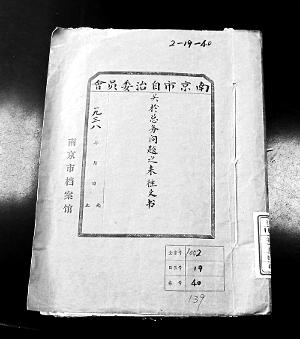 2-19-40
南京市自治委員會
关於总务问题之来往文书
一九三八年 月 日
南京市档案馆
全宗号 1002
目录号 19
卷号 40
139